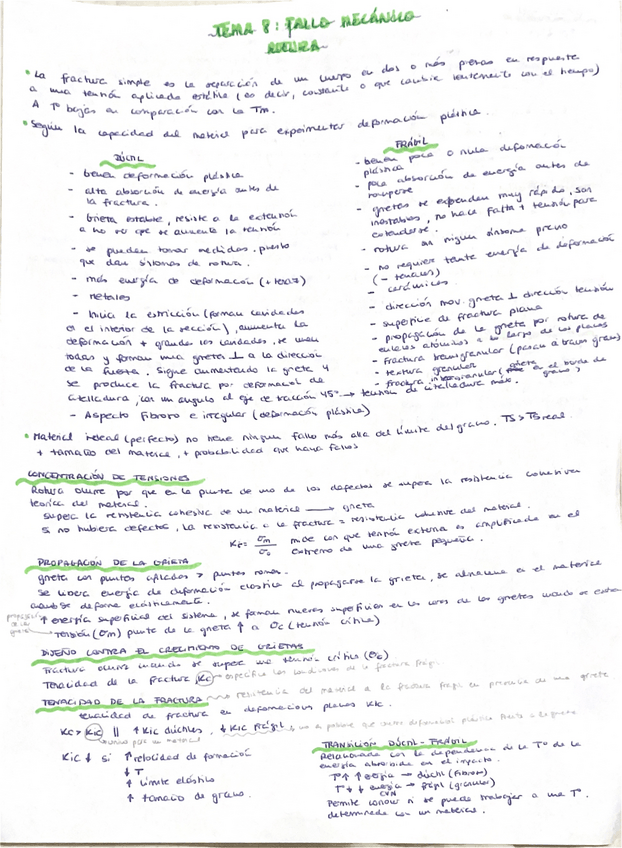 TEMA 8: FALLO MECÁNICO
ROTURA
• La fractura simple es la separación de un cuerpo en dos o más piezas en respuesta
a una tensión aplicada estática (es decir, constante o que cambie lentamente con el tiempo)
A Tª bajas en comparación con la Tm.
• Según la capacidad del material para experimentar deformación plástica.
DÚCTIL
- tienen deformación plástica
- alta absorción de energía antes de
la fractura.
- Grieta estable, resiste a la extensión
a no ser que se aumente la tensión
- se pueden tomar medidas, puesto
que dan síntomas de rotura.
- más energía de deformación (+ tenaz)
- metales
- Inicia la estricción (forman cavidades
en el interior de la sección), aumenta la
deformación + grandes las cavidades, se unen
todas y forman una grieta ⊥ a la dirección
de la fuerza. Sigue aumentando la grieta y
se produce la fractura por deformación de
cizalladura, con un angulo al eje de tracción 45º → tensión de cizalladura max.
- Aspecto fibroso e irregular (deformación plástica)
FRÁGIL
- tienen poca o nula deformación
plástica
- poca absorción de energía antes de
romperse
- grietas se expanden muy rápido, son
inestables, no hace falta + tensión para
extenderse.
- rotura sin ningun síntoma previo
- no requiere tanta energía de deformación
(- tenaces)
- cerámicos
- dirección mov. grieta ⊥ dirección tensión
- superficie de fractura plana
- propagación de la grieta por rotura de
enlaces atómicos a lo largo de los planos
- fractura transgranular (pasan a traves grano)
- textura granular
- fractura intergranular ( grieta en el borde de
grano)
• Material ideal (perfecto) no tiene ningun fallo más alla del límite del grano. TS > TSreal.
+ tamaño del material, + probabilidad que haya fallos
CONCENTRACIÓN DE TENSIONES
Rotura ocurre por que en la punta de uno de los defectos se supera la resistencia cohesiva
teorica del material.
supera la resistencia cohesiva de un material → grieta
Si no hubiera defectos, la resistencia a la fractura = resistencia cohesiva del material.
Kt = σm / σo mide con que tensión externa es amplificada en el
extremo de una grieta pequeña.
PROPAGACIÓN DE LA GRIETA
grieta con puntos afilados > puntos romos.
Se libera energía de deformación elastica al propagarse la grieta, se almacena en el material
cuando se deforma elásticamente.
↑ energía superficial del sistema, se forman nuevas superficies en las caras de las grietas cuando se
propagación de la grieta
tensión (σm) punta de la grieta ↑ a σc (tensión crítica)
DISEÑO CONTRA EL CRECIMIENTO DE GRIETAS
Fractura ocurre cuando se supera una tensión crítica (σc)
Tenacidad de la fractura Kc → especifica las condiciones de la fractura frágil
TENACIDAD DE LA FRACTURA → resistencia del material a la fractura fragil en presencia de una grieta
tenacidad de fractura en deformaciones planas KIC.
Kc > KIC || ↑ KIC dúctiles, ↓ KIC frágil,
KIC ↓ si ↑ velocidad de formación
↓ T
↑ límite elástico
↑ tamaño de grano.
TRANSICIÓN DÚCTIL-FRÁGIL
Relacionada con la dependencia de la Tª de la
energía absorbida en el impacto.
Tª ↑ ↑ energía → dúctil (fibroso)
T ↓ ↓ energía → frágil (granular)
CVN
Permite conocer si se puede trabajar a una Tª
determinada con un material.